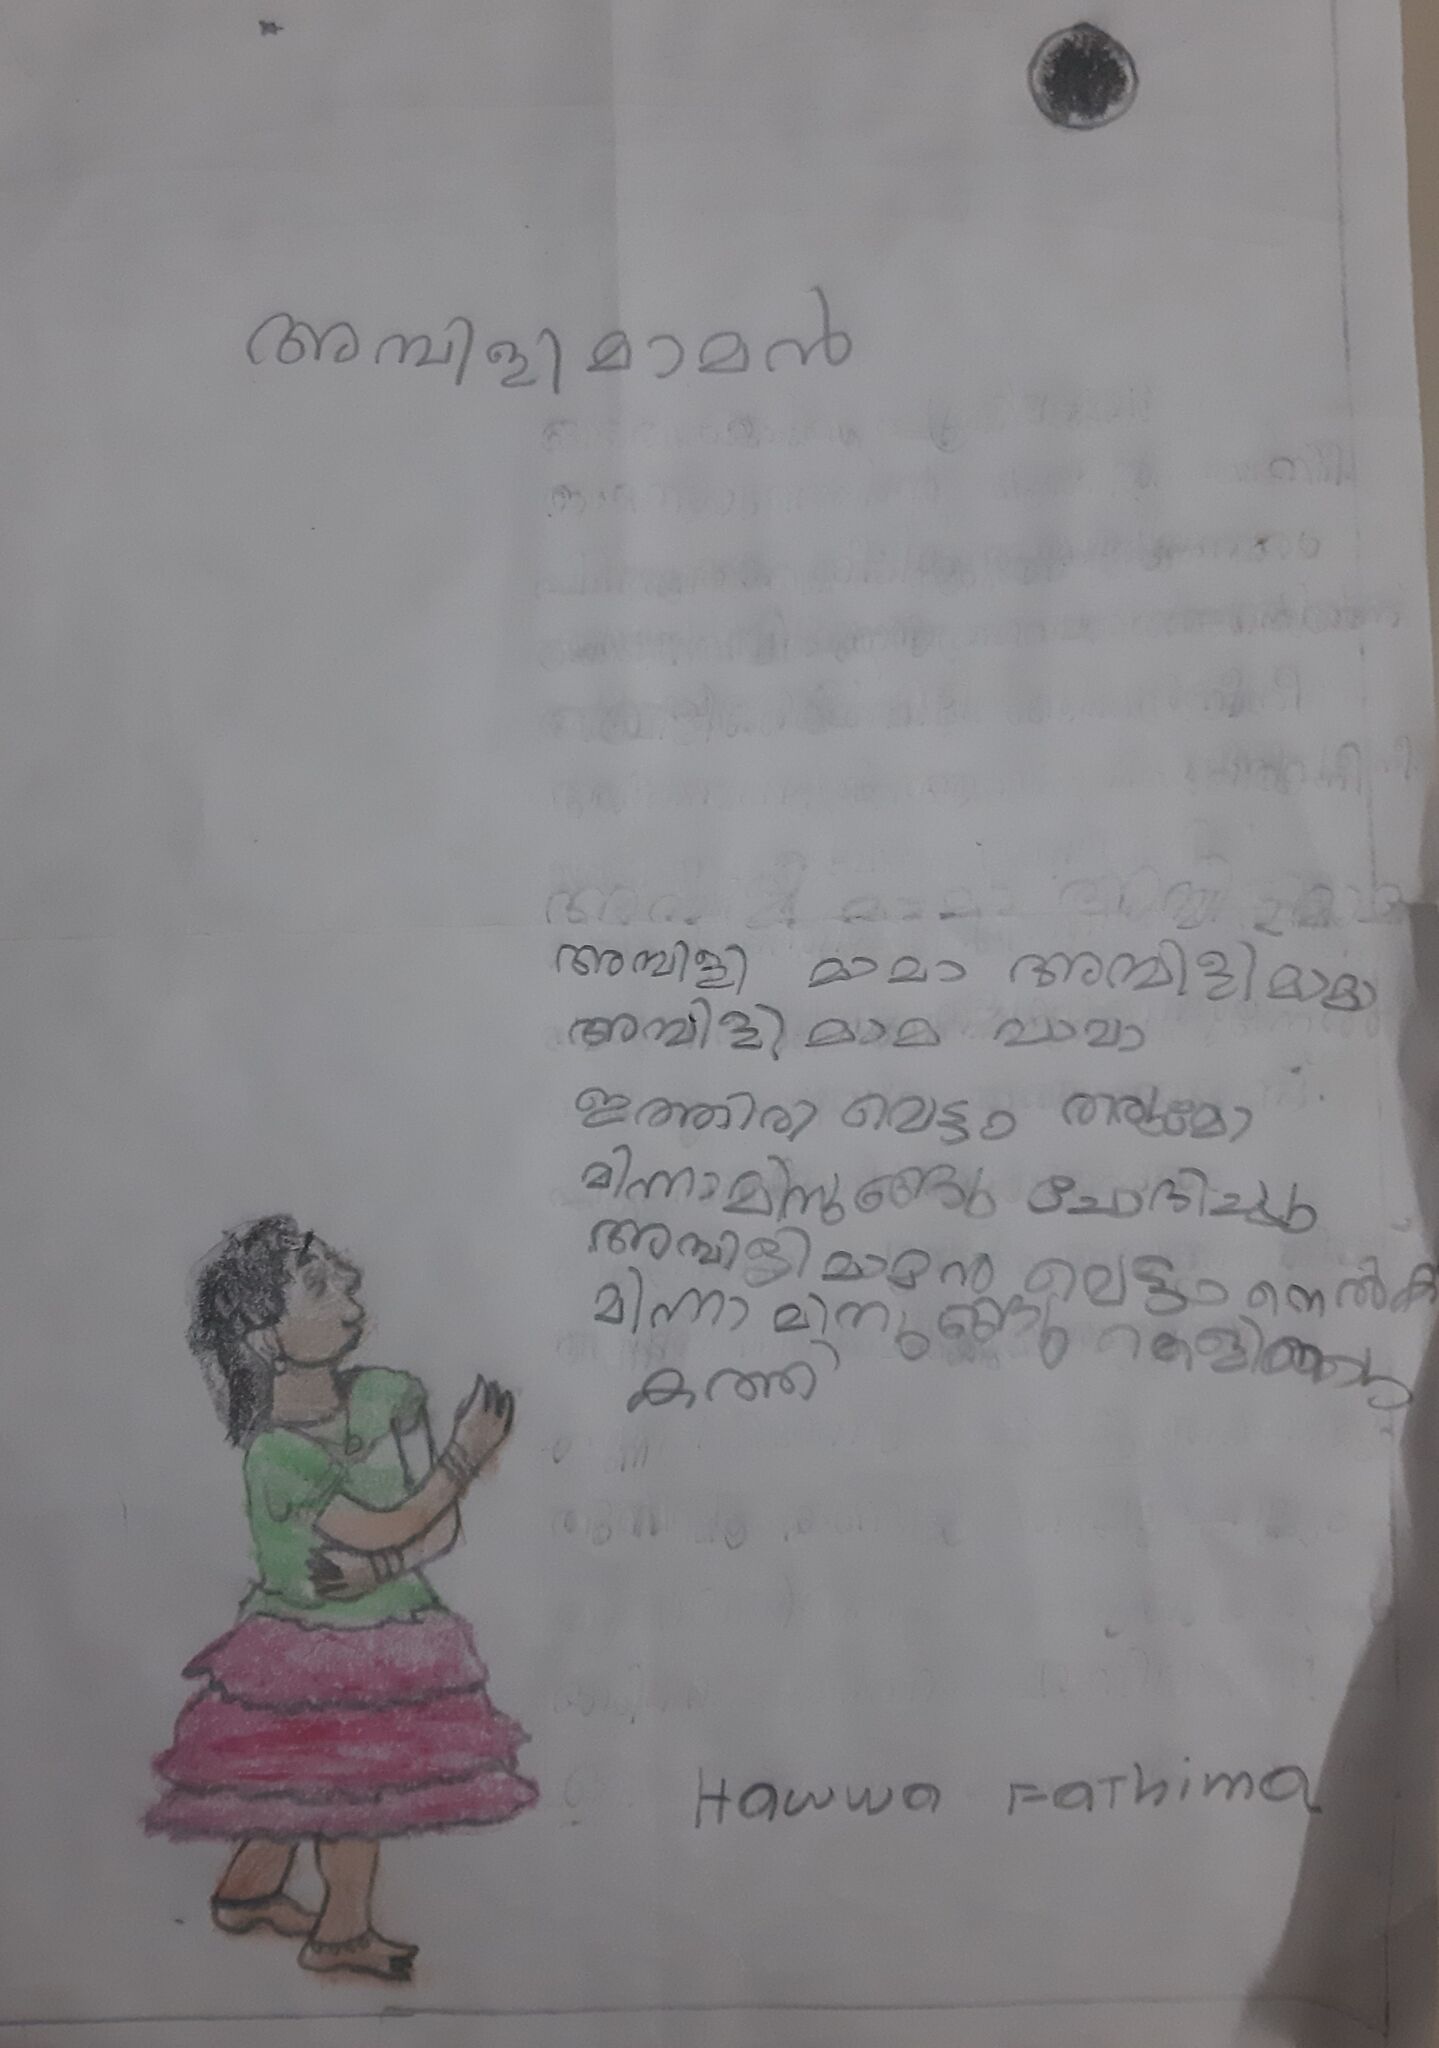 അമ്പിളിമാമൻ
അമ്പിളി മാമാ അമ്പിളിമാമാ
അമ്പിളി മാമ മാമാ
ഇത്തിരി വെട്ടം തരുമോ
മിന്നാമിനുങ്ങു ചോദിച്ചു
അമ്പിളിമാമൻ വെട്ടം നെൽക
മിന്നാമിനുങ്ങു തെളിഞ്ഞു
കത്തി
Hawwa Fathima